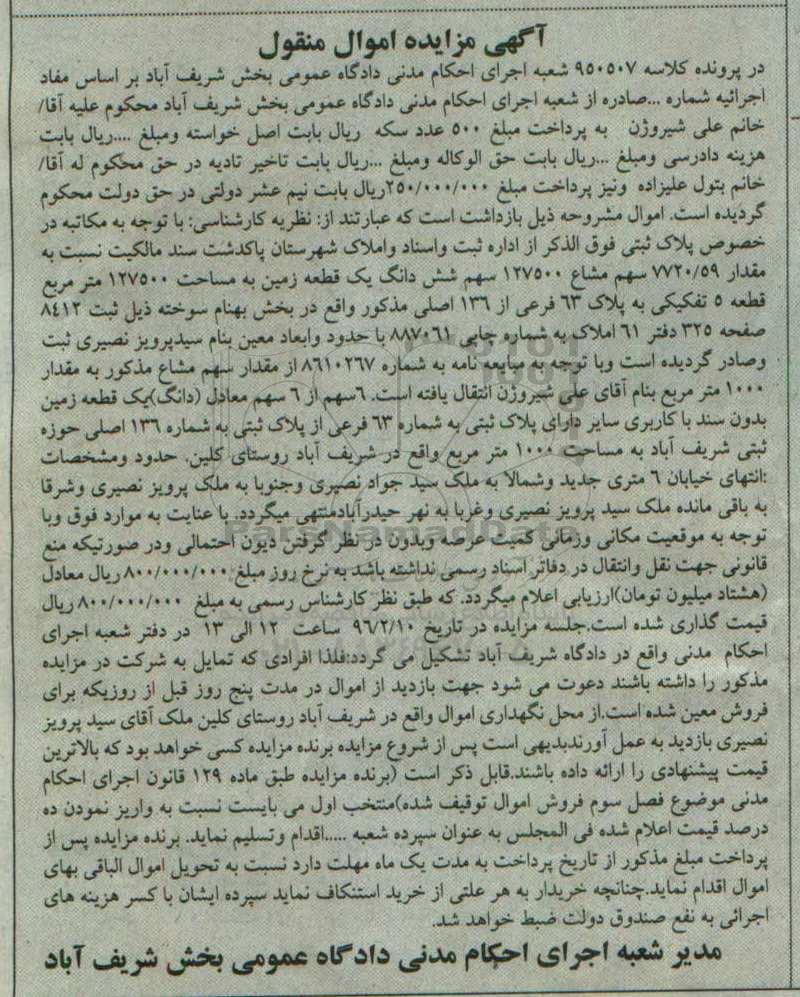 آگهی مزایده اموال منقول
در پرونده کلاسه ۹۵۰۵۰۷ شعبه اجرای احکام مدنی دادگاه عمومی بخش شریف آباد بر اساس مفاد
اجرائیه شماره ...صادره از شعبه اجرای احکام مدنی دادگاه عمومی بخش شریف آباد محکوم علیه آقا/
خانم علی شیروژن به پرداخت مبلغ ۵۰۰ عدد سکه ریال بابت اصل خواسته ومبلغ ....ریال بابت
هزینه دادرسی ومبلغ ...ریال بابت حق الوکاله ومبلغ ...ریال بابت تاخیر تادیه در حق محکوم له آقا/
خانم بتول علیزاده ونیز پرداخت مبلغ ۲۵۰/۰۰۰/۰۰۰ریال بابت نیم عشر دولتی در حق دولت محکوم
گردیده است. اموال مشروحه ذیل بازداشت است که عبارتند از: نظریه کارشناسی: با توجه به مکاتبه در
خصوص پلاک ثبتی فوق الذکر از اداره ثبت واسناد واملاک شهرستان پاکدشت سند مالکیت نسبت به
مقدار ۷۷۲۰/۵۹ سهم مشاع ۱۲۷۵۰۰ سهم شش دانگ یک قطعه زمین به مساحت ۱۲۷۵۰۰ متر مربع
قطعه ۵ تفکیکی به پلاک ۶۳ فرعی از ۱۳۶ اصلی مذکور واقع در بخش بهنام سوخته ذیل ثبت ۸۴۱۲
صفحه ۳۲۵ دفتر ۶۱ املاک به شماره چاپی ۸۸۷۰۶۱ با حدود وابعاد معین بنام سیدپرویز نصیری ثبت
وصادر گردیده است وبا توجه به مبایعه نامه به شماره ۸۶۱۰۲۶۷ از مقدار سهم مشاع مذکور به مقدار
۱۰۰۰ متر مربع بنام آقای علی شیروژن انتقال یافته است. ۶سهم از ۶ سهم معادل (دانگ)یک قطعه زمین
بدون سند با کاربری سایر دارای پلاک ثبتی به شماره ۶۳ فرعی از پلاک ثبتی به شماره ۱۳۶ اصلی حوزه
ثبتی شریف آباد به مساحت ۱۰۰۰ متر مربع واقع در شریف آباد روستای کلین. حدود ومشخصات
:انتهای خیابان ۶ متری جدید وشمالا به ملک سید جواد نصیری وجنوبا به ملک پرویز نصیری وشرقا
به باقی مانده ملک سید پرویز نصیری وغربا به نهر حیدرآبادمنتهی میگردد. با عنایت به موارد فوق وبا
توجه به موقعیت مکانی وزمانی کمیت عرصه وبدون در نظر گرفتن دیون احتمالی ودر صورتیکه منع
قانونی جهت نقل وانتقال در دفاتر اسناد رسمی نداشته باشد به نرخ روز مبلغ ۸۰۰/۰۰۰/۰۰۰ ریال معادل
(هشتاد میلیون تومان)ارزیابی اعلام میگردد. که طبق نظر کارشناس رسمی به مبلغ ۸۰۰/۰۰۰/۰۰۰ ریال
قیمت گذاری شده است.جلسه مزایده در تاریخ ۹۶/۲/۱۰ ساعت ۱۲ الی ۱۳ در دفتر شعبه اجرای
احکام مدنی واقع در دادگاه شریف آباد تشکیل می گردد:فلذا افرادی که تمایل به شرکت در مزایده
مذکور را داشته باشند دعوت می شود جهت بازدید از اموال در مدت پنج روز قبل از روزیکه برای
فروش معین شده است.از محل نگهداری اموال واقع در شریف آباد روستای کلین ملک آقای سید پرویز
نصیری بازدید به عمل آورندبدیهی است پس از شروع مزایده برنده مزایده کسی خواهد بود که بالاترین
قیمت پیشنهادی را ارائه داده باشند.قابل ذکر است (برنده مزایده طبق ماده ۱۲۹ قانون اجرای احکام
مدنی موضوع فصل سوم فروش اموال توقیف شده)منتخب اول می بایست نسبت به واریز نمودن ده
درصد قیمت اعلام شده فی المجلس به عنوان سپرده شعبه .....اقدام وتسلیم نماید. برنده مزایده پس از
پرداخت مبلغ مذکور از تاریخ پرداخت به مدت یک ماه مهلت دارد نسبت به تحویل اموال الباقی بهای
اموال اقدام نماید.چنانچه خریدار به هر علتی از خرید استنکاف نماید سپرده ایشان با کسر هزینه های
اجرائی به نفع صندوق دولت ضبط خواهد شد.
مدیر شعبه اجرای احکام مدنی دادگاه عمومی بخش شریف آباد